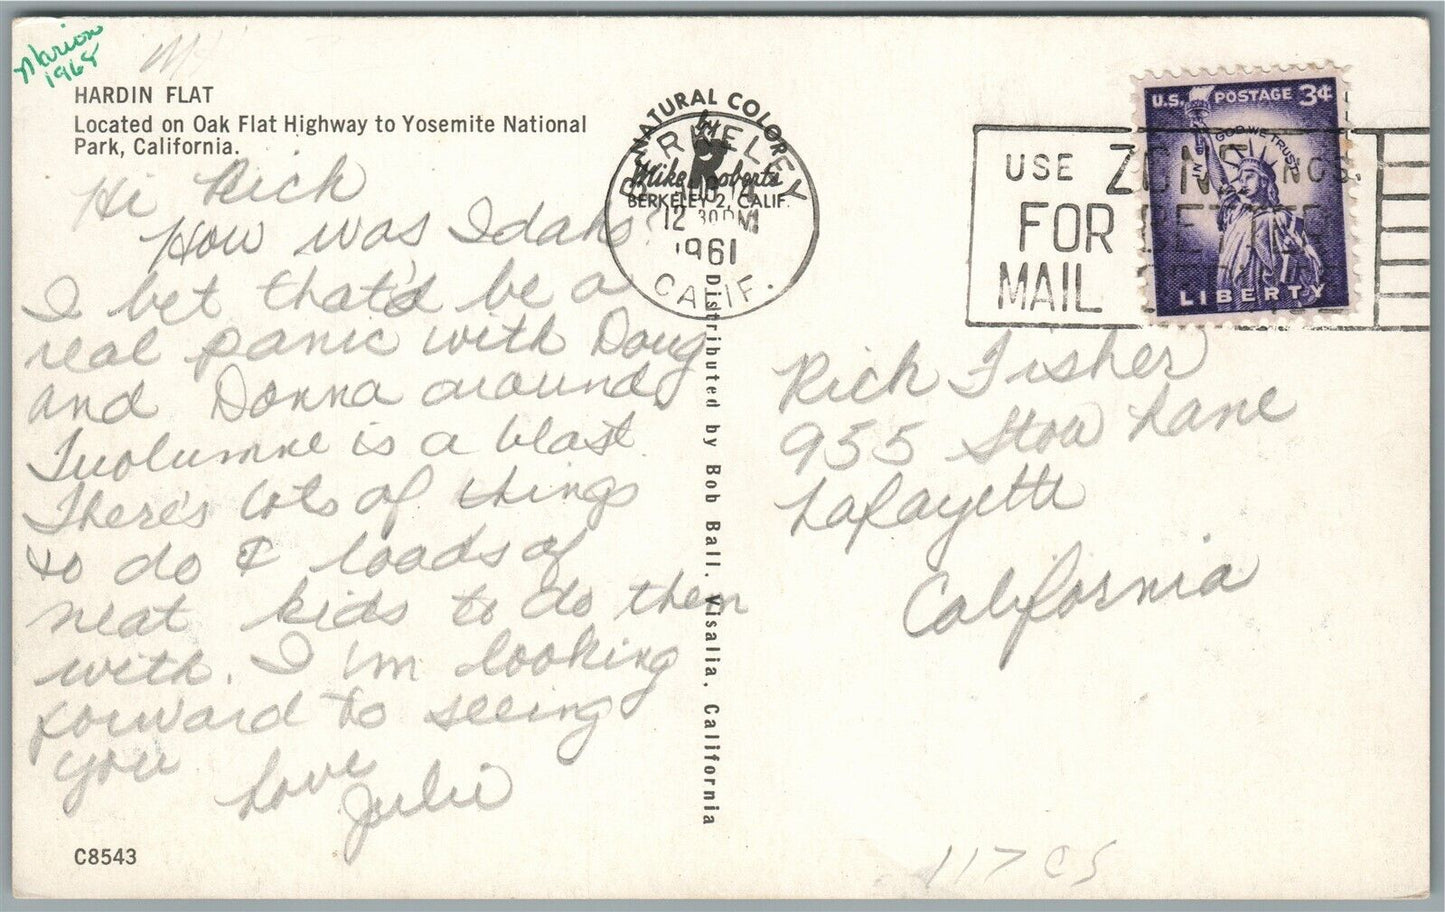 Marion
1968
HARDIN FLAT
Located on Oak Flat Highway to Yosemite National
Park, California.
Hi Rich
How was Idaho?
I bet that'd be a
real panic with Doug
and Donna around.
Tuolumne is a blast.
There's lots of things
to do & loads of
neat kids to do them
with. I'm looking
forward to seeing
you
Love
Julie
C8543
NATURAL COLOR
by
Mike Roberts
BERKELEY 2, CALIF.
12 30 PM
1961
CALIF.
Distributed by Bob Ball, Visalia, California
USE ZONE NOS.
FOR BETTER
MAIL
U.S. POSTAGE 3¢
IN GOD WE TRUST
LIBERTY
Rich Fisher
955 Stow Lane
Lafayette
California
117 CS